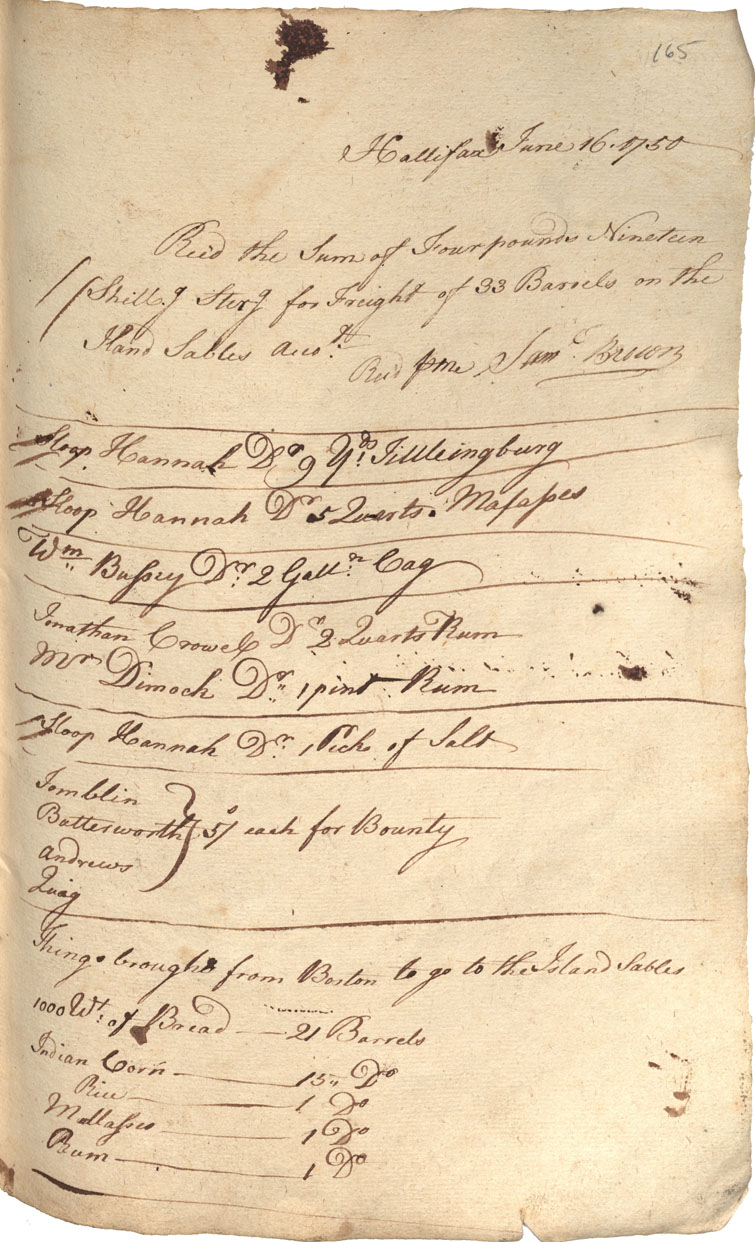 165
Hallifax June 16. 1750
Rec'd the Sum of Four pounds Nineteen
Shill.g Sterg for Freight of 33 Barrels on the
Iland Sables Acco.tt
Rec'd pr me Sam.l Brown
Sloop Hannah Dr. 9 Y.ds Tittleingburg
Sloop Hannah Dr. 5 Quarts Malasses
Wm Bussey Dr. 2 Gall.n Cag
Jonathan Crowel Dr 2 Quarts Rum
Mr Dimock Dr. 1 pint Rum
Sloop Hannah Dr. 1 Peck of Salt
Tomblin
Butterworth } 5/ each for Bounty
Andrews
Quig
Things brought from Boston to go to the Island Sables
1000 Wt. of Bread — 21 Barrels
Indian Corn — 15 " Do
Rice — 1 Do
Mollasses — 1 Do
Rum — 1 Do